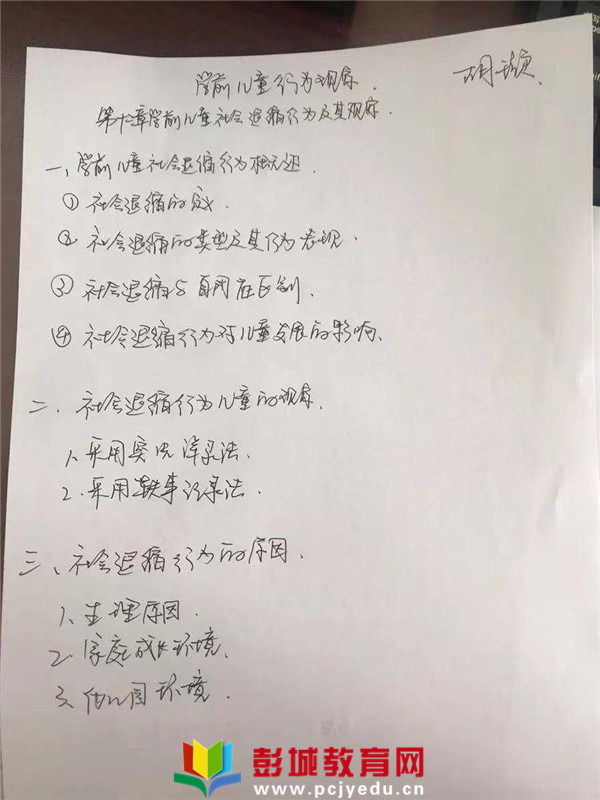 学前儿童行为观察.
胡颖
第十章学前儿童社会退缩行为及其观察.
一、学前儿童社会退缩行为概述.
① 社会退缩的定义.
② 社会退缩的类型及其行为表现.
③ 社会退缩与自闭症区别.
④ 社会退缩行为对儿童发展的影响.
二、社会退缩行为儿童的观察.
1、采用实况详录法.
2、采用轶事记录法.
三、社会退缩行为的原因.
1、生理原因.
2、家庭成长环境.
3、幼儿园环境.
彭城教育网
www.pcjyedu.cn